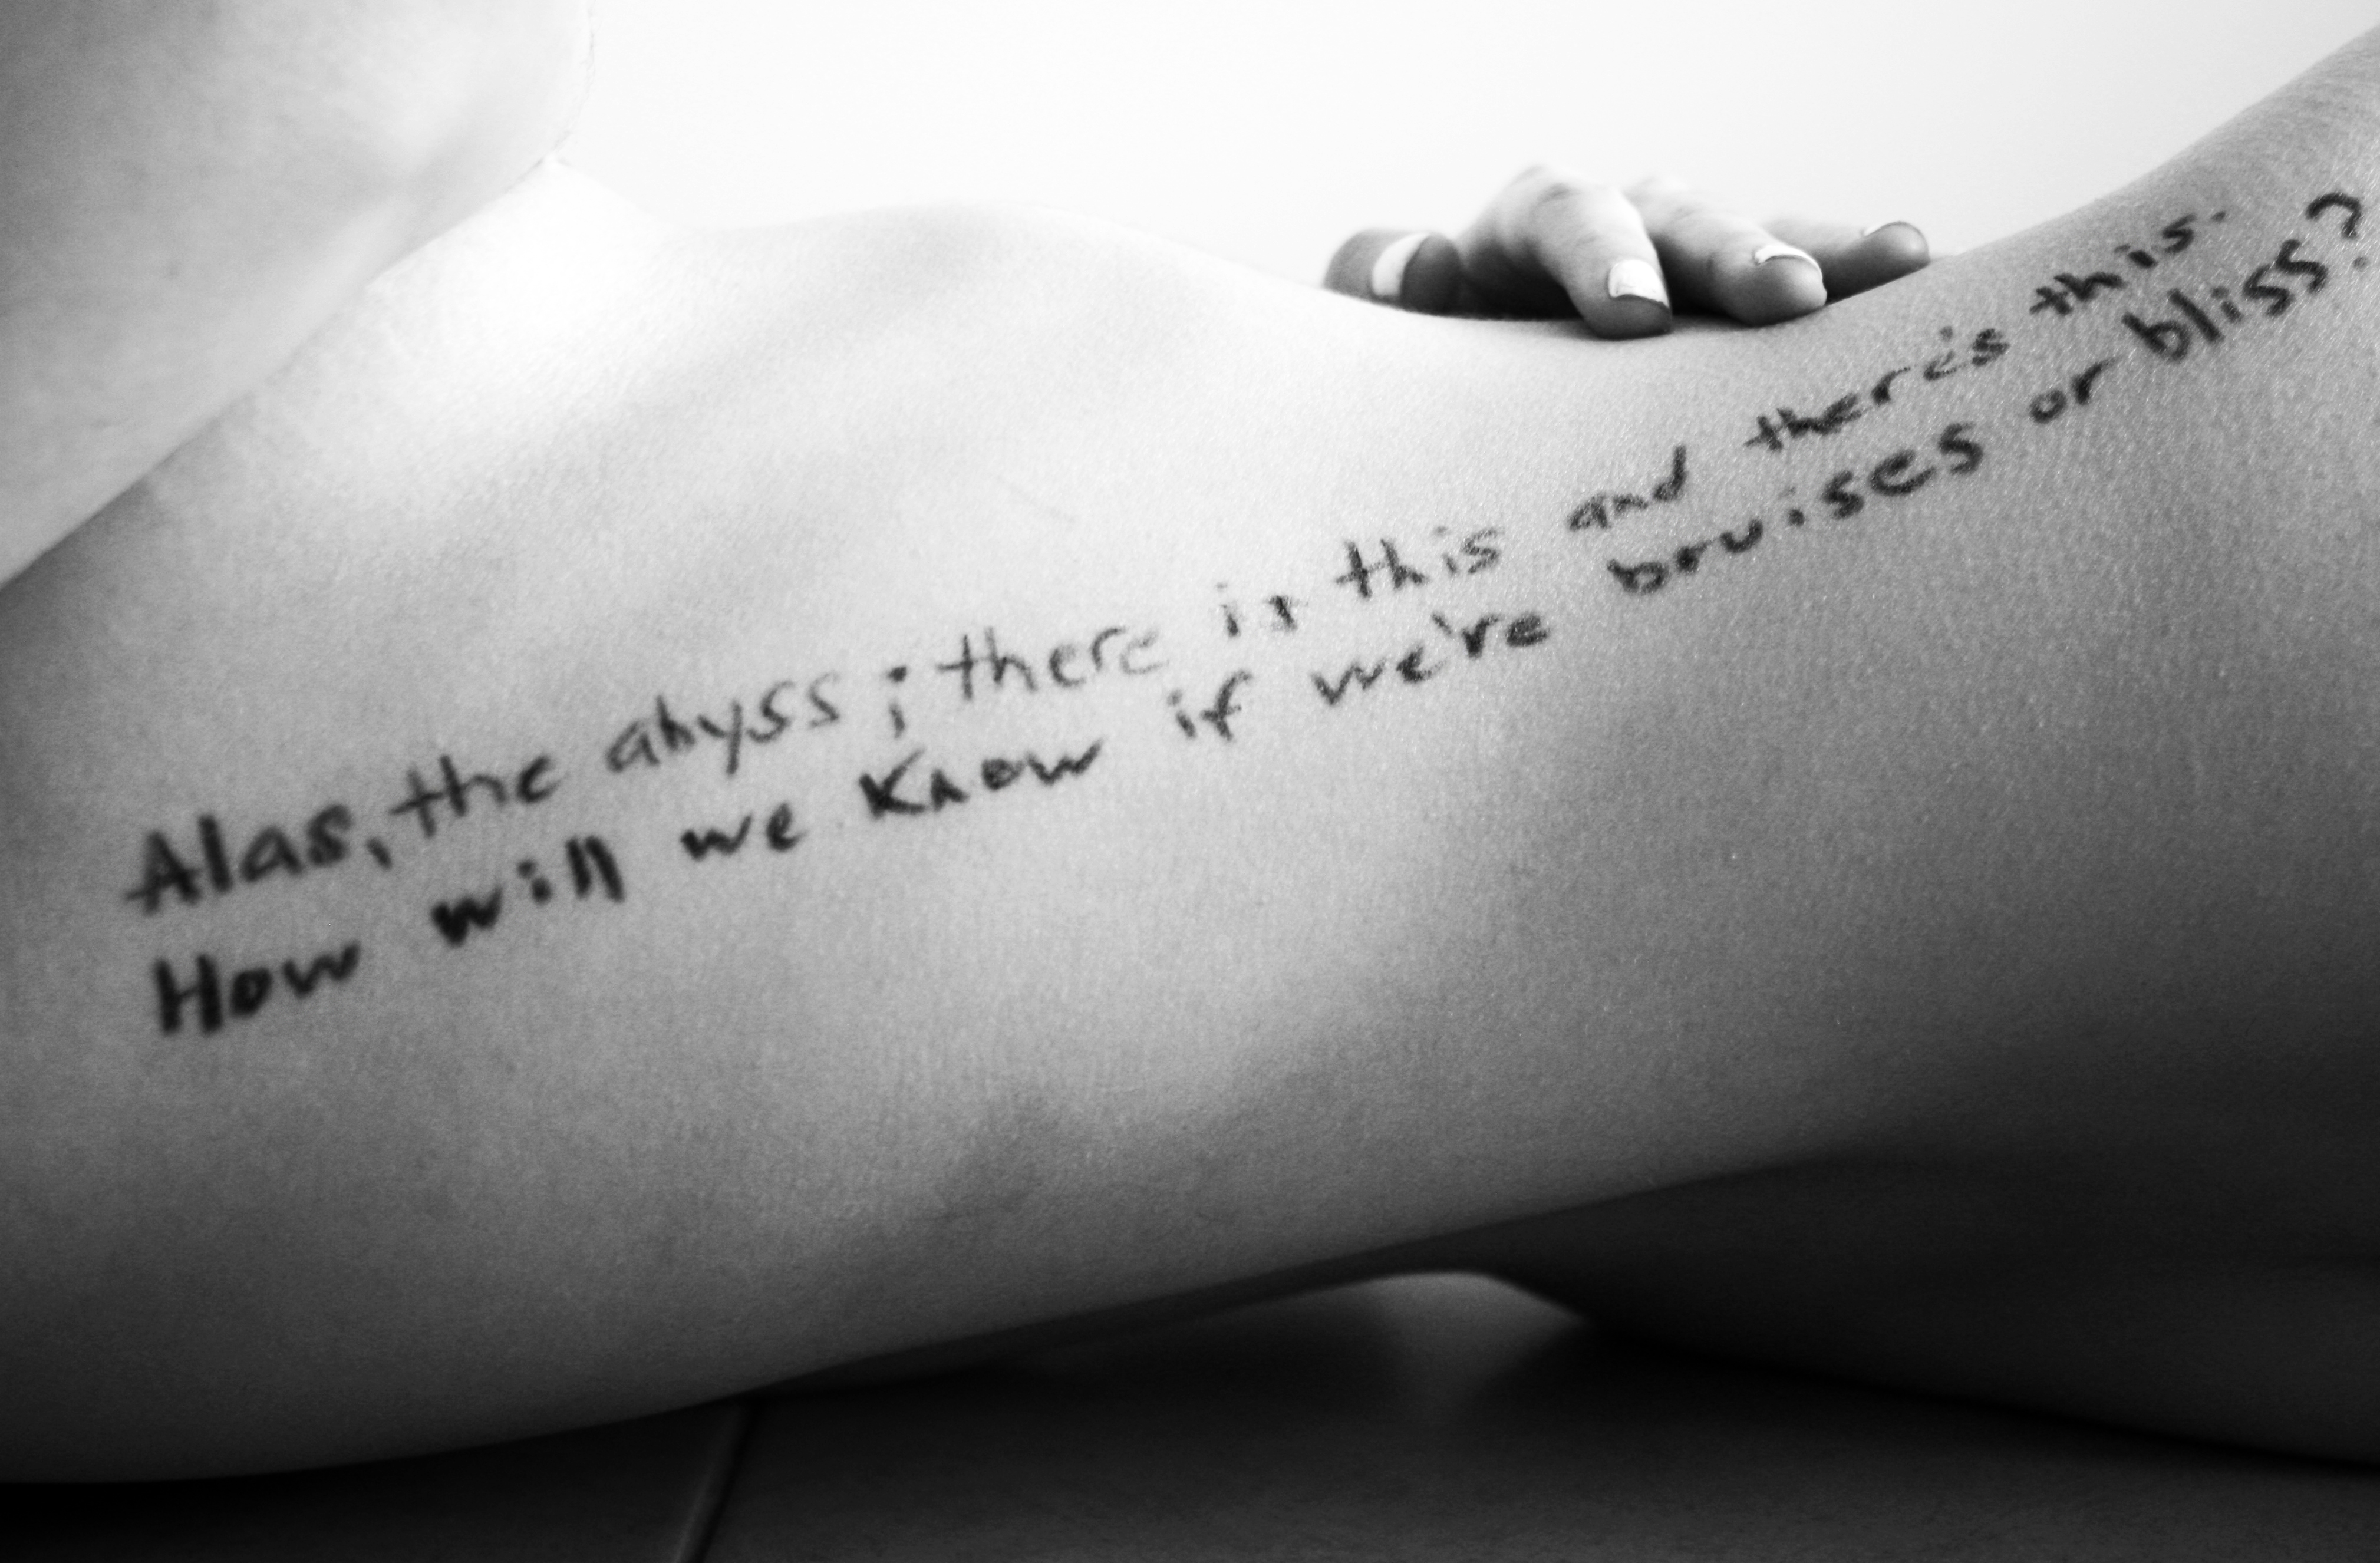 Alas, the abyss; there is this and there's this.
How will we Know if we're bruises or bliss?